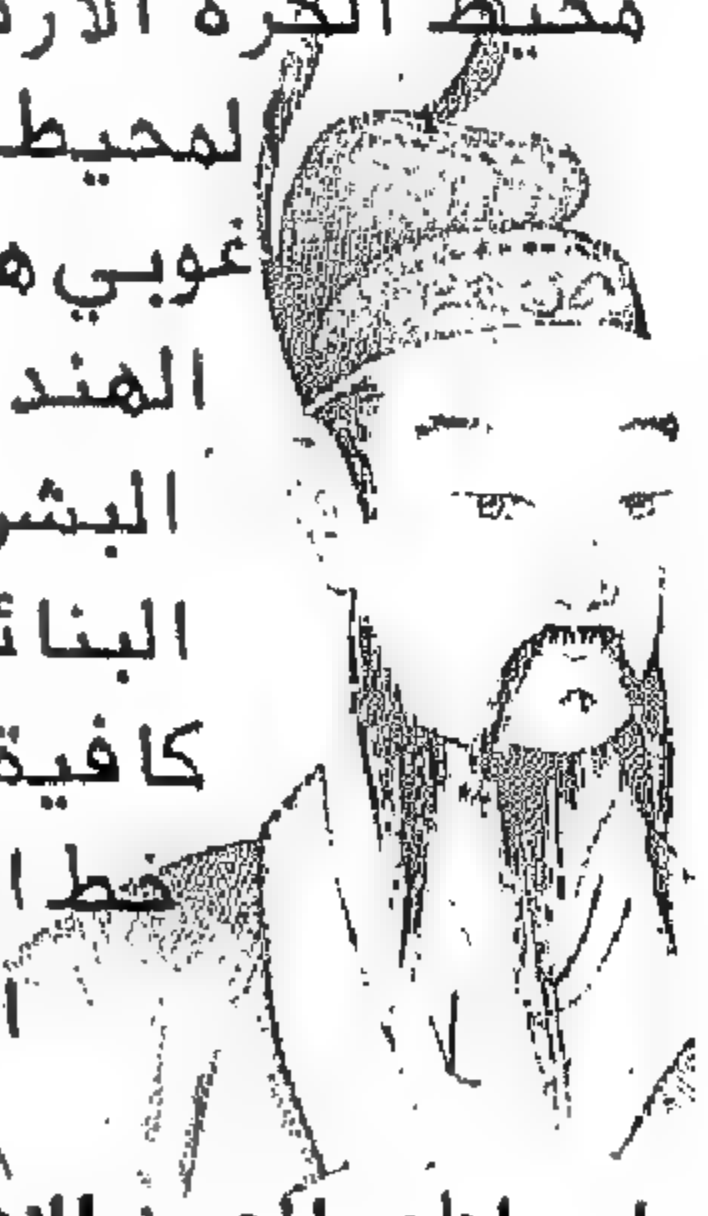 محيط الكرة الأرض
لمحيط
غوبي ه
الهند
البشر
البنائ
كافية
خط ا
ا